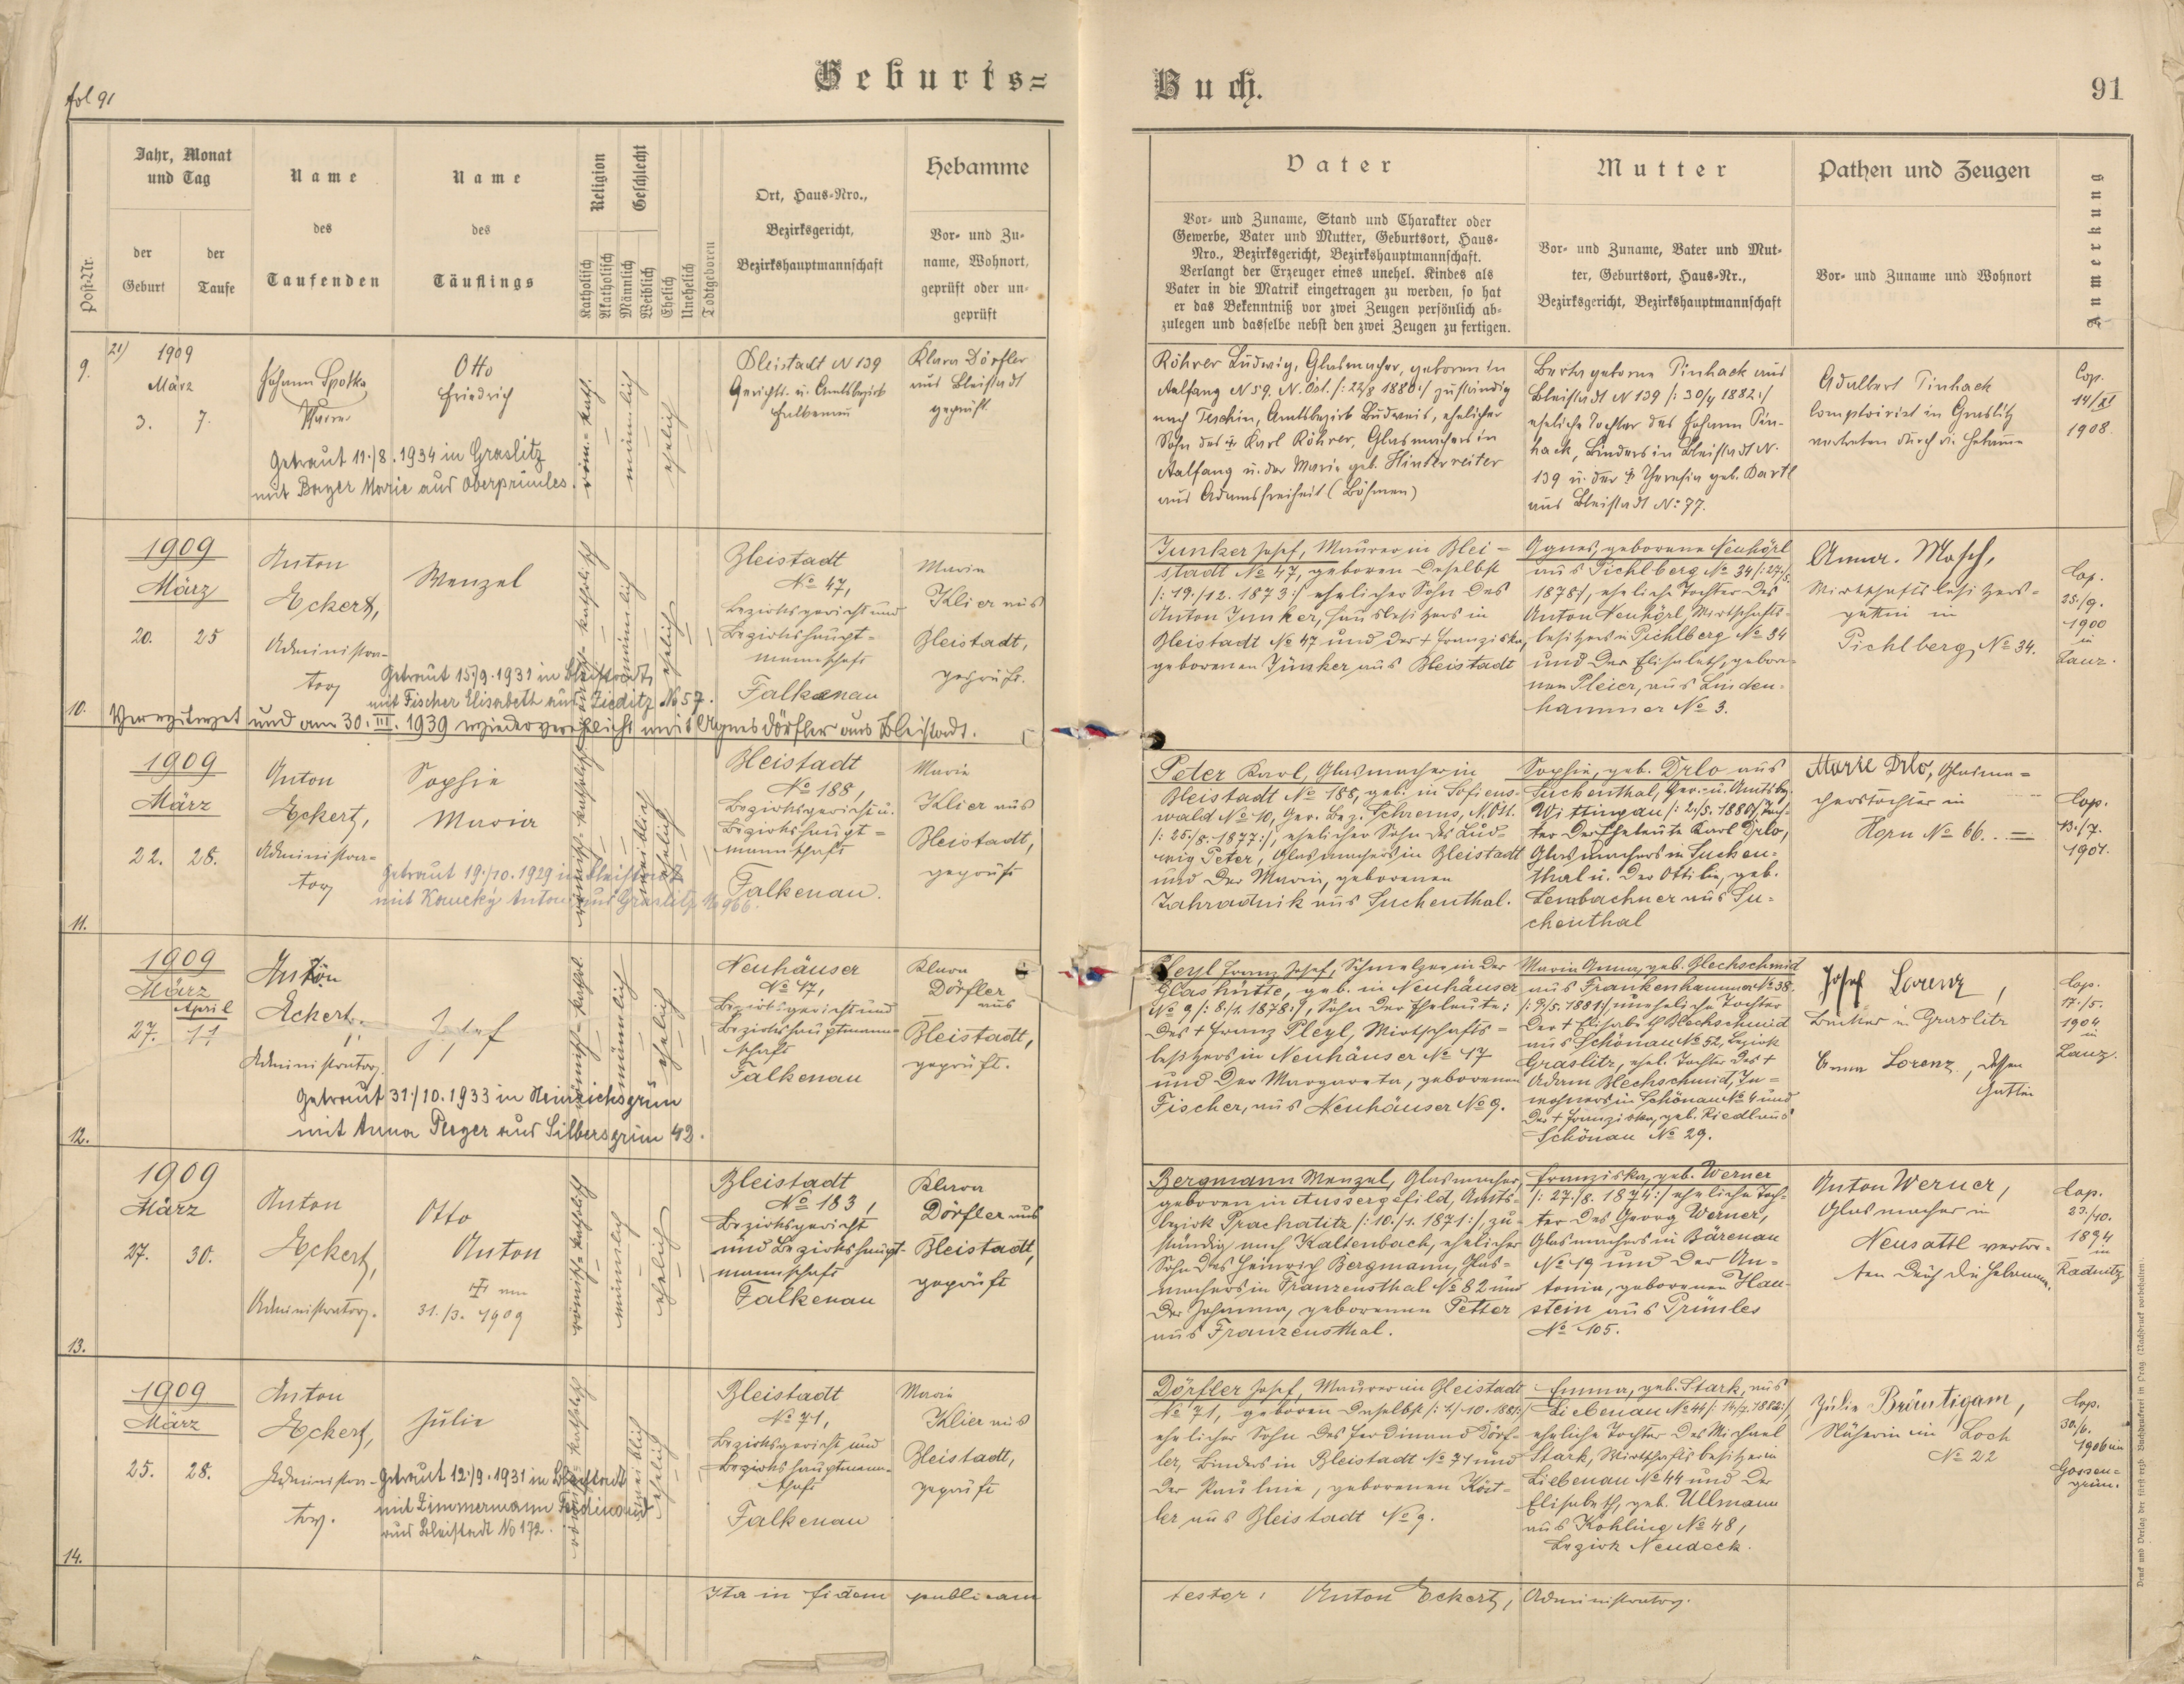 fol 91
Geburts=
Buch.
91
Post-Nr.
Jahr, Monat
und Tag
der
Geburt
der
Taufe
Name
des
Taufenden
Name
des
Täuflings
Religion
Katholisch
Akatholisch
Geschlecht
Männlich
Weiblich
Ehelich
Unehelich
Todtgeboren
Ort, Haus-Nro.,
Bezirksgericht,
Bezirkshauptmannschaft
Hebamme
Vor- und Zu-
name, Wohnort,
geprüft oder un-
geprüft
Vater
Vor- und Zuname, Stand und Charakter oder
Gewerbe, Vater und Mutter, Geburtsort, Haus-
Nro., Bezirksgericht, Bezirkshauptmannschaft.
Verlangt der Erzeuger eines unehel. Kindes als
Vater in die Matrik eingetragen zu werden, so hat
er das Bekenntniß vor zwei Zeugen persönlich ab-
zulegen und dasselbe nebst den zwei Zeugen zu fertigen.
Mutter
Vor- und Zuname, Vater und Mut-
ter, Geburtsort, Haus-Nr.,
Bezirksgericht, Bezirkshauptmannschaft
Pathen und Zeugen
Vor- und Zuname und Wohnort
Anmerkung
9.
21)
1909
März
3. 7.
Johann Spotka
Pfarrer
Otto
Friedrich
Getraut 11./8. 1934 in Graslitz
mit Bayer Marie aus Oberprimles.
röm.-kath.
männlich
ehelich
Bleistadt N 139
Gerichts- u. Amtsbezirk
Falkenau
Klara Dörfler
aus Bleistadt
geprüft
Röhrer Ludwig, Glasmacher, geboren in
Aalfang N 59. N. Öst. /: 22/8 1880:/ zuständig
nach Teschin, Amtsbezirk Budweis, ehelicher
Sohn des Karl Röhrer, Glasmachers in
Aalfang u. der Marie geb. Hinterreiter
aus Adamsfreiheit (Böhmen)
Berta geborne Pinhack aus
Bleistadt N 139 /: 30/4 1882:/
eheliche Tochter des Johann Pin-
hack, Binders in Bleistadt N.
139 u. der † Theresia geb. Bartl
aus Bleistadt No: 77.
Adalbert Pinhack
Comptoirist in Graslitz
vertreten durch die Hebamme
Cop.
14/XI
1908.
10.
1909
März
20. 25
Anton
Eckert,
Administra-
tor
Wenzel
Getraut 15./9. 1931 in Bleistadt
mit Fischer Elisabeth aus Zieditz No 57.
Verwitwet und am 30. III. 1939 wiederverehelicht mit Agnes Dörfler aus Bleistadt.
römisch-katholisch
männlich
ehelich
Bleistadt
No 47,
Bezirksgericht und
Bezirkshaupt=
mannschaft
Falkenau
Marie
Klier aus
Bleistadt,
geprüft.
Junker Josef, Maurer in Blei=
stadt No 47, geboren daselbst
/: 19./12. 1873:/ ehelicher Sohn des
Anton Junker, Hausbesitzers in
Bleistadt No 47 und der † Franziska,
geborenen Jünker aus Bleistadt
Agnes, geborene Neuhörl
aus Pichlberg No 34 /: 27./5.
1878:/, eheliche Tochter des
Anton Neuhörl Wirtschafts-
besitzers in Pichlberg No 34
und der Elisabeth, gebore-
nen Pleier, aus Linden-
hammer No 3.
Anna Mosch,
Wirtschaftsbesitzers-
gattin in
Pichlberg No 34.
Cop.
25./9.
1900
in
Lanz.
11.
1909
März
22. 28.
Anton
Eckert,
Administra=
tor
Sophie
Maria
Getraut 19./10. 1929 in Bleistadt
mit Koucký Anton aus Graslitz No 966.
römisch-katholisch
weiblich
ehelich
Bleistadt
No 188,
Bezirksgericht u.
Bezirkshaupt=
mannschaft
Falkenau.
Marie
Klier aus
Bleistadt,
geprüft
Peter Karl, Glasmacher in
Bleistadt No 188, geb. in Sofiens-
wald No 10, Ger. Bez. Schrems, N. Öst.
/: 25./8. 1877:/, ehelicher Sohn des Lud-
wig Peter, Glasmachers in Bleistadt
und der Maria, geborenen
Zahradnik aus Suchenthal.
Sophie, geb. Drlo aus
Suchenthal, Ger.- u. Amtsbez.
Wittingau /: 2./5. 1880:/, Toch-
ter der Eheleute Karl Drlo,
Glasmachers in Suchen-
thal u. der Ottilie, geb.
Lembachner aus Su=
chenthal
Marie Drlo, Glasma=
cherstochter in
Horn No 66.
Cop.
13./7.
1901.
12.
1909
März
April
27. 11
Anton
Eckert,
Administrator.
Josef
Getraut 31./10. 1933 in Heinrichsgrün
mit Anna Perger aus Silbersgrün 42.
römisch-kathol.
männlich
ehelich
Neuhäuser
No 17,
Bezirksgericht und
Bezirkshauptmann=
schaft
Falkenau
Klara
Dörfler
aus
Bleistadt,
geprüft.
Pleyl Franz Josef, Schmelzer in der
Glashütte, geb. in Neuhäuser
No 9 /: 8./1. 1878:/, Sohn der Eheleute:
des † Franz Pleyl, Wirtschafts=
besitzers in Neuhäuser No 17
und der Margareta, geborenen
Fischer, aus Neuhäuser No 9.
Maria Anna, geb. Blechschmid
aus Frankenhammer No 38.
/: 9./5. 1881:/ uneheliche Tochter
der † Elisabeth Blechschmid
aus Schönau No 52, Bezirk
Graslitz, ehel. Tochter des †
Adam Blechschmid, In=
wohners in Schönau No 4 und
der † Franziska, geb. Riedl aus
Schönau No 29.
Josef Lorenz,
Bäcker in Graslitz
Anna Lorenz, dessen
Gattin
Cop.
17./5.
1904
in
Lanz.
13.
1909
März
27. 30.
Anton
Eckert,
Administrator.
Otto
Anton
† am
31./3. 1909
römisch-katholisch
männlich
ehelich
Bleistadt
No 183,
Bezirksgericht
und Bezirkshaupt-
mannschaft
Falkenau
Klara
Dörfler aus
Bleistadt,
geprüft
Bergmann Wenzel, Glasmacher,
geboren in Aussergefild, Amts-
bezirk Prachatitz /: 10./1. 1871:/, zu-
ständig nach Kaltenbach, ehelicher
Sohn des Heinrich Bergmann, Glas-
machers in Franzensthal No 82 und
der Johanna, geborenen Petter
aus Franzensthal.
Franziska, geb. Werner
/: 27./8. 1874:/ eheliche Toch-
ter des Georg Werner,
Glasmachers in Bärenau
No 19 und der An-
tonia, geborenen Hau-
stein aus Primles
No 105.
Anton Werner,
Glasmacher in
Neusattl vertre-
ten durch die Hebamme.
Cop.
23./10.
1894
in
Radnitz
14.
1909
März
25. 28.
Anton
Eckert,
Administra-
tor.
Julie
Getraut 12./9. 1931 in Bleistadt
mit Zimmermann Ferdinand
aus Bleistadt No 172.
römisch-katholisch
weiblich
ehelich
Bleistadt
No 71,
Bezirksgericht und
Bezirkshauptmann-
schaft
Falkenau
Marie
Klier aus
Bleistadt,
geprüft
Dörfler Josef, Maurer in Bleistadt
No 71, geboren daselbst /: 1./10. 1881:/
ehelicher Sohn des Ferdinand Dörf-
ler, Binders in Bleistadt No 71 und
der Paulnie, geborenen Köst-
ler aus Bleistadt No 9.
Emma, geb. Stark, aus
Liebenau No 44 /: 14./7. 1882:/,
eheliche Tochter des Michael
Stark, Wirtschaftsbesitzer in
Liebenau No 44 und der
Elisabeth, geb. Ullmann
aus Kohling No 48,
Bezirk Neudeck.
Julie Bräutigam,
Näherin in Loch
No 22
Cop.
30./6.
1906 in
Gossen-
grün.
Ita in fidem publicam
testor: Anton Eckert, Administrator.
Druck und Verlag der fürst-erzb. Buchdruckerei in Prag. (Nachdruck vorbehalten).